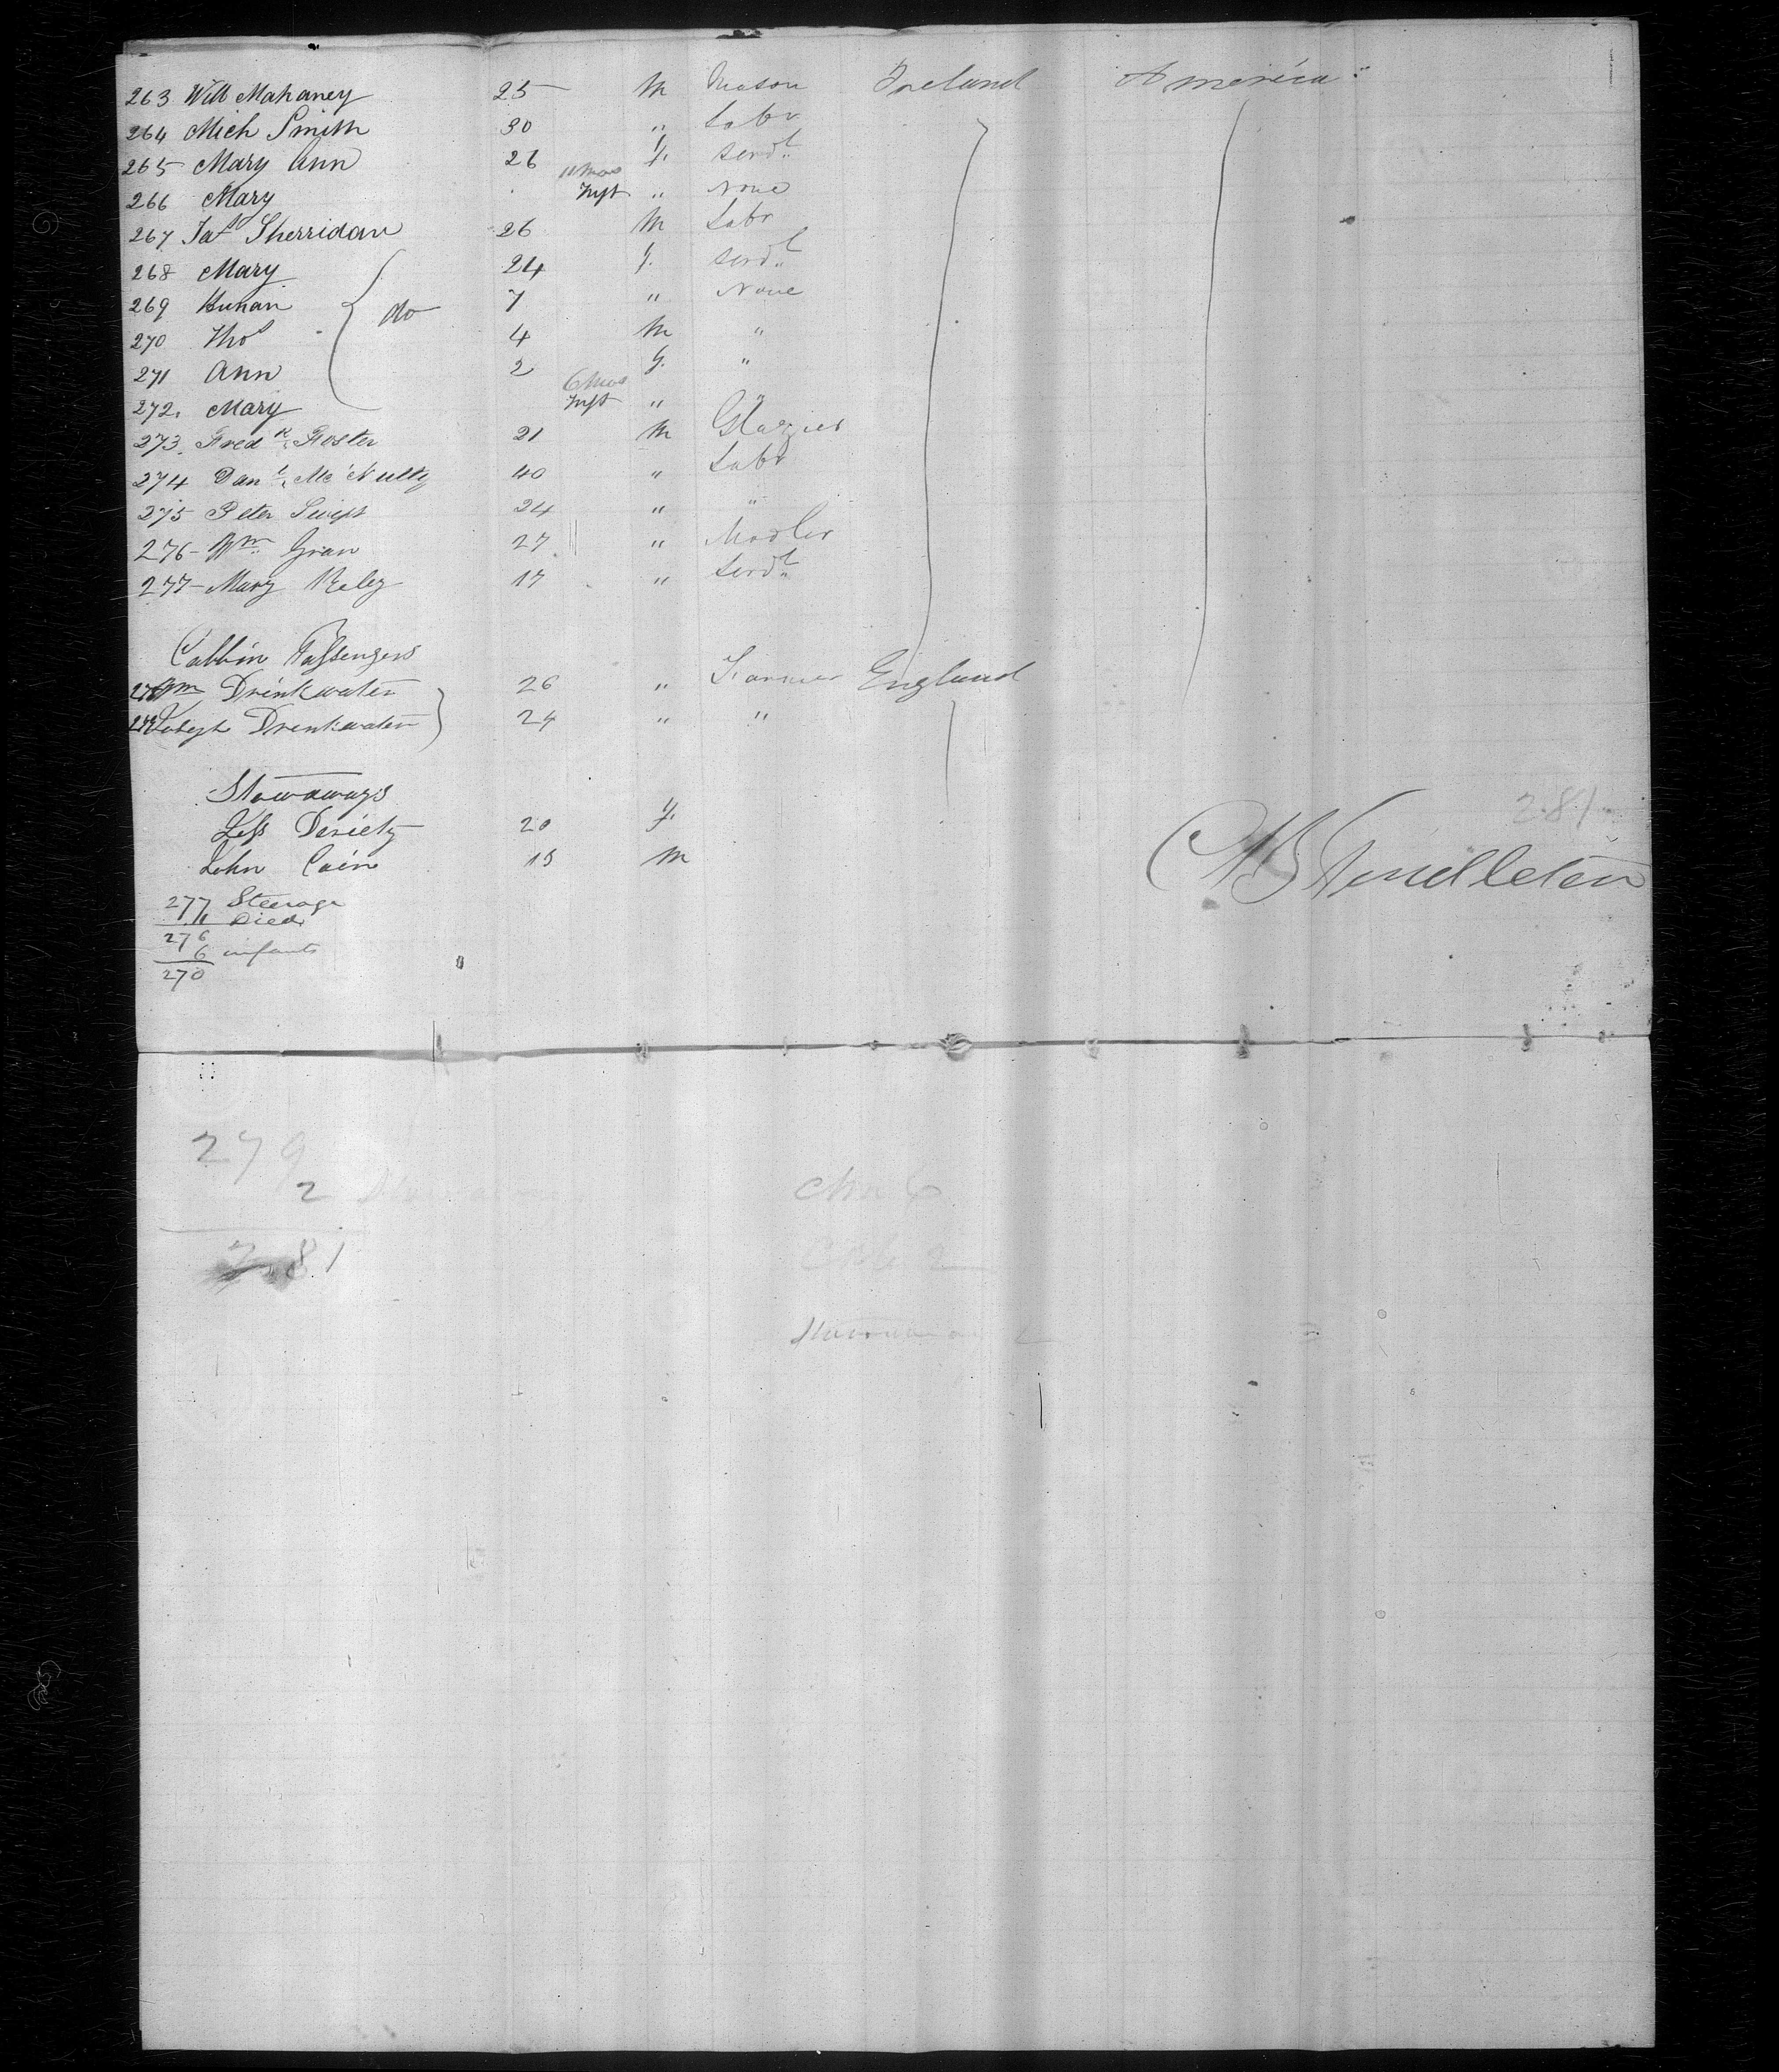 263 Will Mahaney 25 M Mason Ireland America
264 Mich Smith 30 " Labr
265 Mary Ann 26 f. Servt
11 mos
266 Mary Inft " None
267 Jas Sherridan 26 M Labr
268 Mary 24 f. Servt
269 7 " None
do
270 Thos 4 M "
271 Ann 2 f. "
6 mos
272. Mary Inft " "
273. Fredk Foster 21 M Glazier
274 Danl. McNulty 40 " Labr
275 Peter Swift 24 " "
276 - Wm Gran 27 "
277 - Mary Reley 17 " Servt
Cabbin Passengers
278 Wm Drinkwater 26 " Farmer England
279 Drinkwater 24 " "
Stowaways
20 f.
281
John Cain 15 M
Pendleton
277 Steerage
11 Died
276
6 infants
270
279
2
281